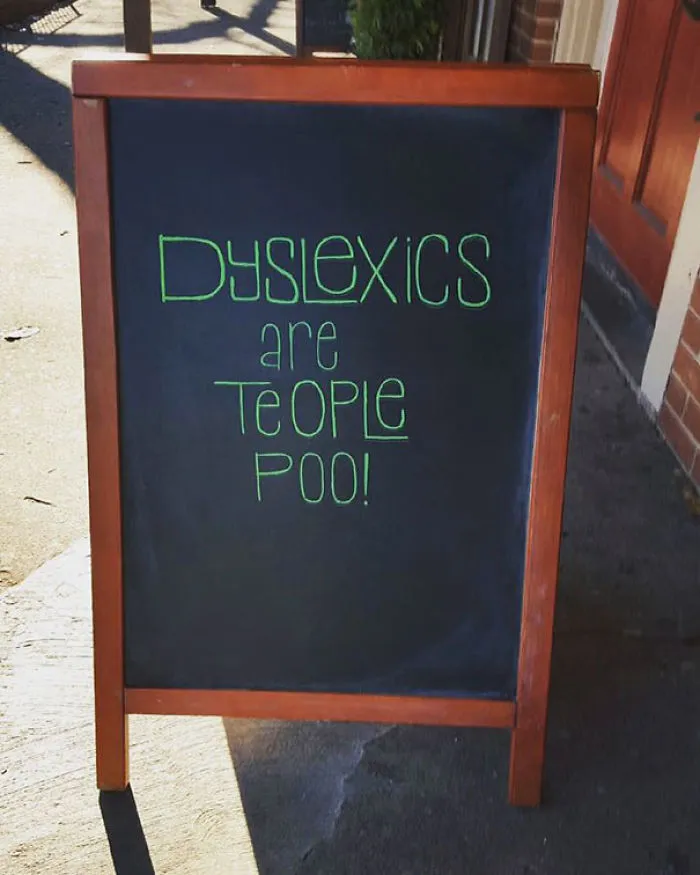 DYSLEXiCS
are
TEOPLE
POO!